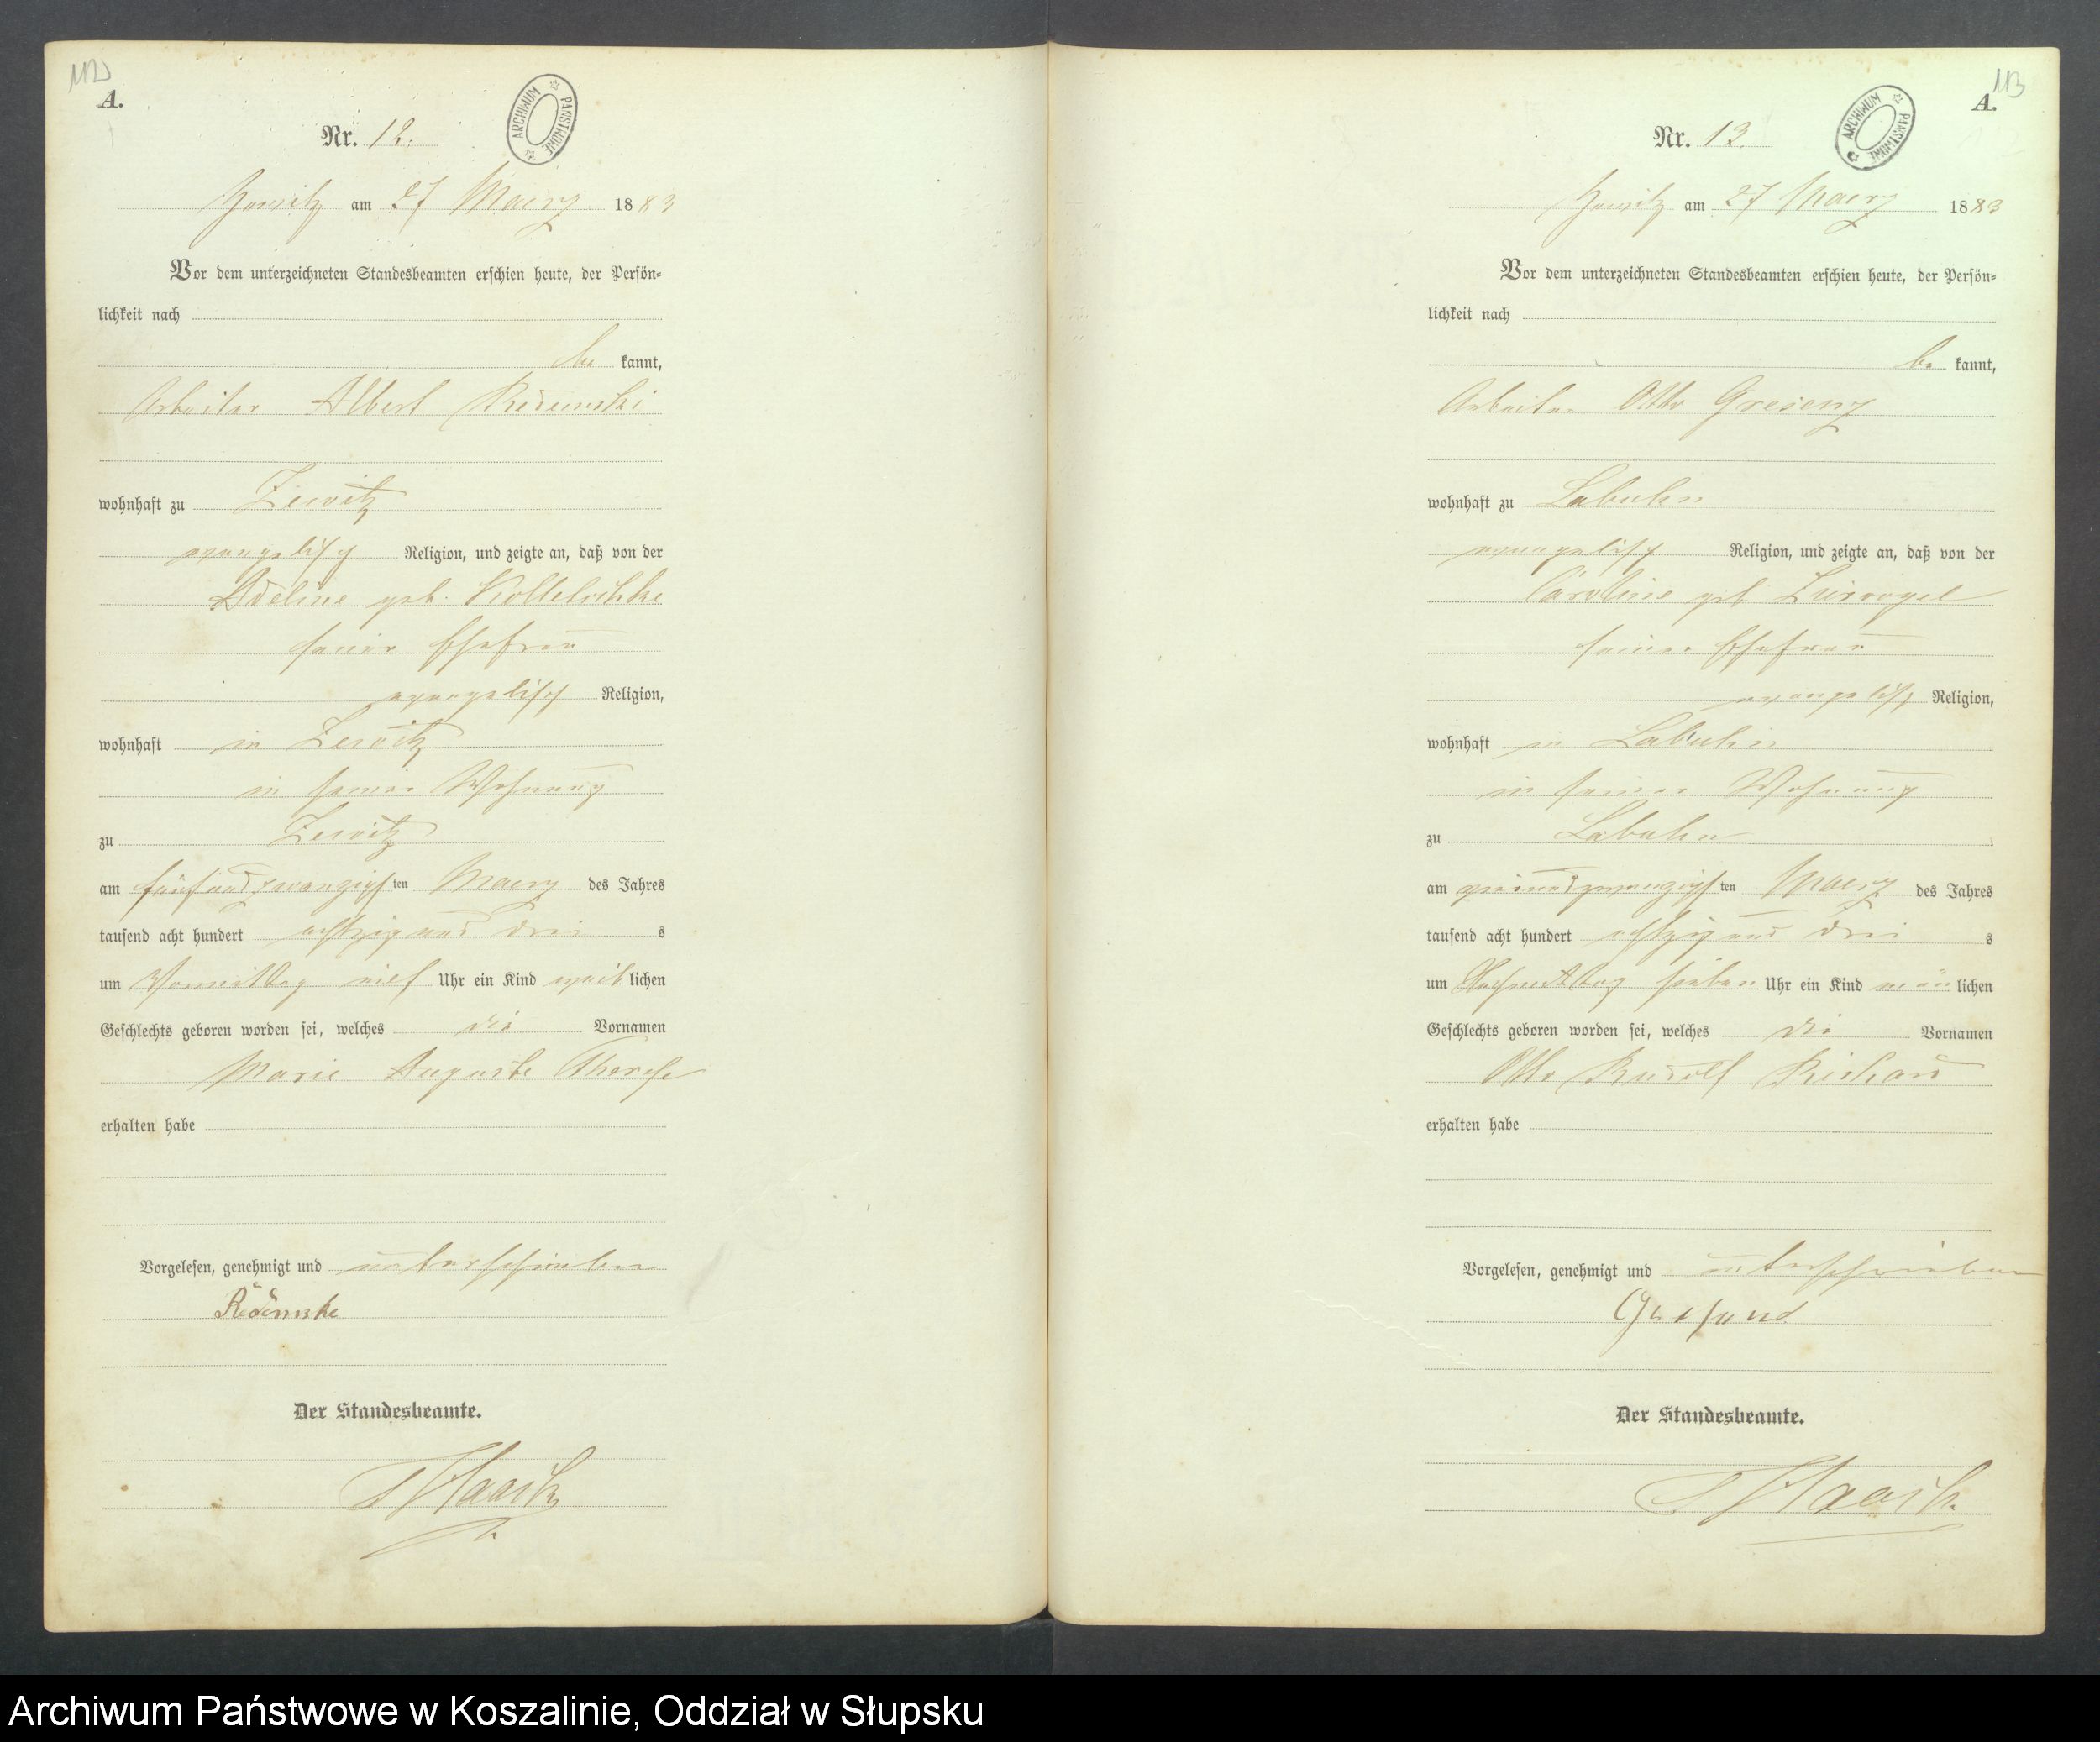 112
A.
ARCHIWUM PAŃSTWOWE
Nr. 12.
Zewitz am 27 Maerz 1883
Vor dem unterzeichneten Standesbeamten erschien heute, der Persön-
lichkeit nach
be kannt,
Arbeiter Albert
wohnhaft zu Zewitz
evangelisch Religion, und zeigte an, daß von der
Adeline geb.
seiner Ehefrau
evangelisch Religion,
wohnhaft in Zewitz
in seiner Wohnung
zu Zewitz
am fünfundzwanzigsten Maerz des Jahres
tausend acht hundert achtzig und drei s
um Vormittag elf Uhr ein Kind weiblichen
Geschlechts geboren worden sei, welches die Vornamen
Marie Auguste Therese
erhalten habe
Vorgelesen, genehmigt und unterschrieben
Der Standesbeamte.
113
A.
ARCHIWUM PAŃSTWOWE
Nr. 13.
Zewitz am 27 Maerz 1883
Vor dem unterzeichneten Standesbeamten erschien heute, der Persön-
lichkeit nach
be kannt,
Arbeiter Otto Gresenz
wohnhaft zu Labuhn
evangelisch Religion, und zeigte an, daß von der
Caroline geb
seiner Ehefrau
evangelisch Religion,
wohnhaft in Labuhn
in seiner Wohnung
zu Labuhn
am zweiundzwanzigsten Maerz des Jahres
tausend acht hundert achtzig und drei s
um Nachmittag sieben Uhr ein Kind mänlichen
Geschlechts geboren worden sei, welches die Vornamen
Otto Rudolf Richard
erhalten habe
Vorgelesen, genehmigt und unterschrieben
Der Standesbeamte.
Archiwum Państwowe w Koszalinie, Oddział w Słupsku